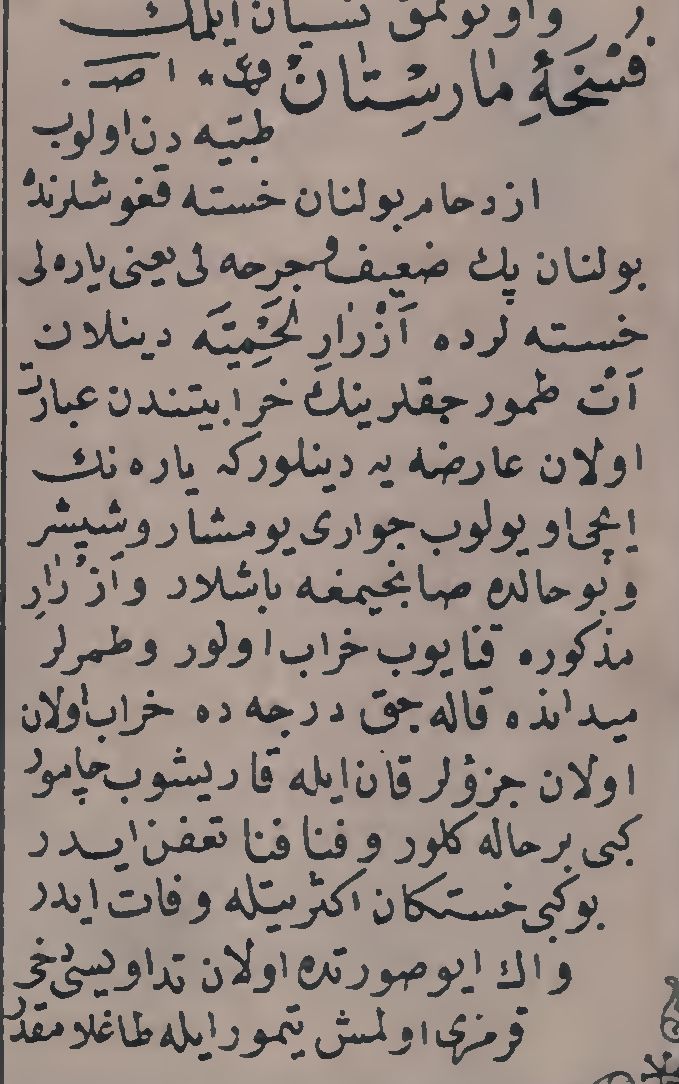 و اونوتمق نسيان ايلمك
فَسْخَهٔ مٰارسِتٰانْ فھ * ا صـ .
طبيه دن اولوب
ازدحام بولنان خسته قغوشلرنده
بولنان پك ضعيف و جرحه لى يعنى ياره لى
خسته لرده اَزْرٰارِ لَحْمِيَّه دينلان
اَتْ طمورجقلرينك خرابيتندن عبارت
اولان عارضه يه دينلوركه ياره نك
ايچى اويولوب جوارى يومشار و شيشر
و بو حالده صانجيمغه باشلار و اَزْرٰارِ
مذكوره قنايوب خراب اولور و طمرلر
ميدانده قاله جق درجه ده خراب اولان
اولان جزؤلر قان ايله قاريشوب چامور
كبى بر حاله كلور و فنا فنا تعفن ايدر
بوكبى خستكان اكثريتله وفات ايدر
و اك ايو صورتده اولان تداويسى دخى
قرمزى اولمش تيمور ايله طاغلامقدر